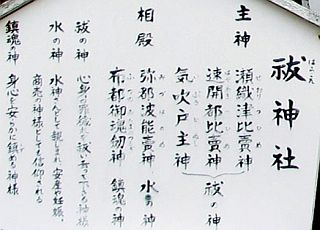 祓神社
はらえ
主神
瀬織津比賣神
せおりつひめ
速開都比賣神
気吹戸主神
祓の神
相殿
弥都波能賣神 水の神
布都御魂剣神 鎮魂の神
祓の神 心身の罪穢を祓い
水の神 水神さんとして親しまれ、安産や妊娠、
商売の神様としても信仰される
鎮魂の神 身心を安らかに鎮める神様